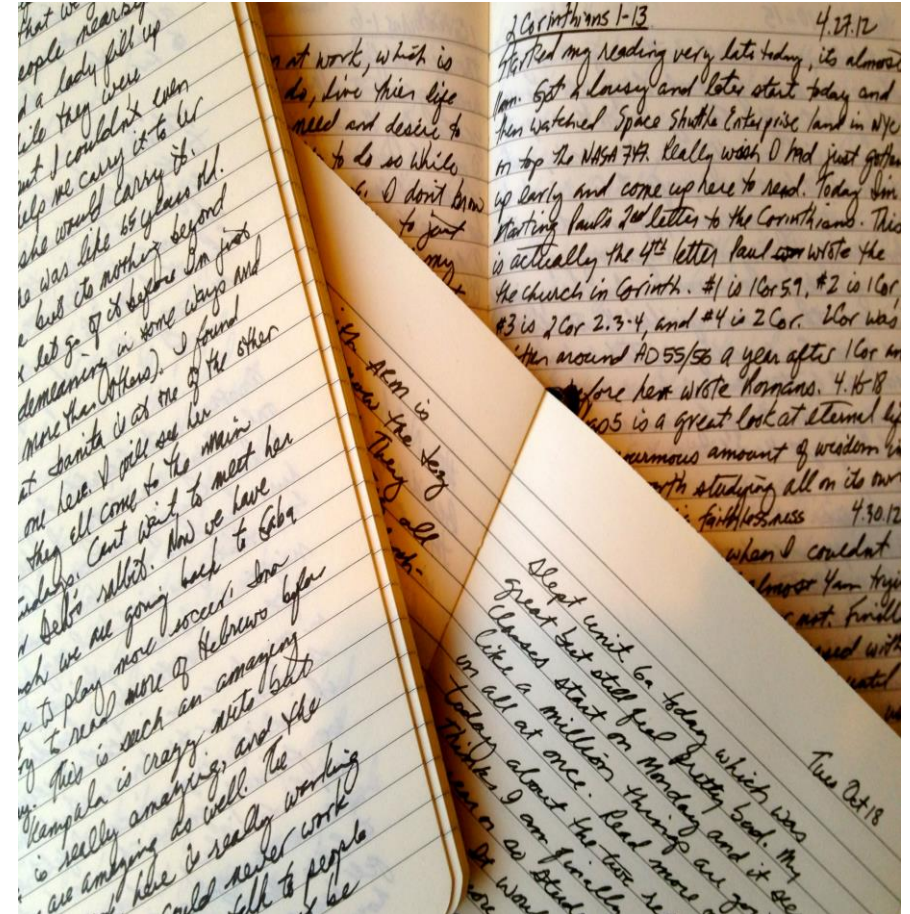 that we
people nearby
a lady fill up
while they were
but I couldn't even
help me carry it to her
she would carry this
was like 65 years old.
but its nothing beyond
let go of it before I'm just
demeaning in some ways and
more than others). I found
at Sanita is at one of the other
one here. I will see her
they all come to the main
Cant wait to meet her
Deb's rabbit. Now we have
we are going back to Gaba
to play more soccer.
to read more of Hebrews before
This is such an amazing
Kampala is crazy nuts but
is really amazing, and the
are amazing as well. The
here is really working
could never work
talk to people
be
at work, which is
do, live this life
need and desire to
to do so while
I don't know
to just
my
ARM is
now the
They
all
2 Corinthians 1-13 4.27.12
Started my reading very late today, its almost
11am. Got a lousy and later start today and
then watched Space Shuttle Enterprise land in NYC
on top the NASA 747. Really wish I had just gotten
up early and come up here to read. Today I'm
starting Paul's 2nd letter to the Corinthians. This
is actually the 4th letter Paul wrote the
the church in Corinth. #1 is 1Cor 5.9, #2 is 1Cor,
#3 is 2Cor 2.3-4, and #4 is 2Cor. 2Cor was
around AD 55/56 a year after 1Cor
before he wrote Romans. 4.16-18
is a great look at eternal
enormous amount of wisdom
worth studying all on its own
faithlessness 4.30.12
when I couldnt
almost 4am
not. Finally
with
until
Tues Oct 18
Slept until 6a today which was
great but still feel pretty bad. My
classes start on Monday and it
like a million things are
in all at once. Read more
today about the two
Think I am finally
or so
would